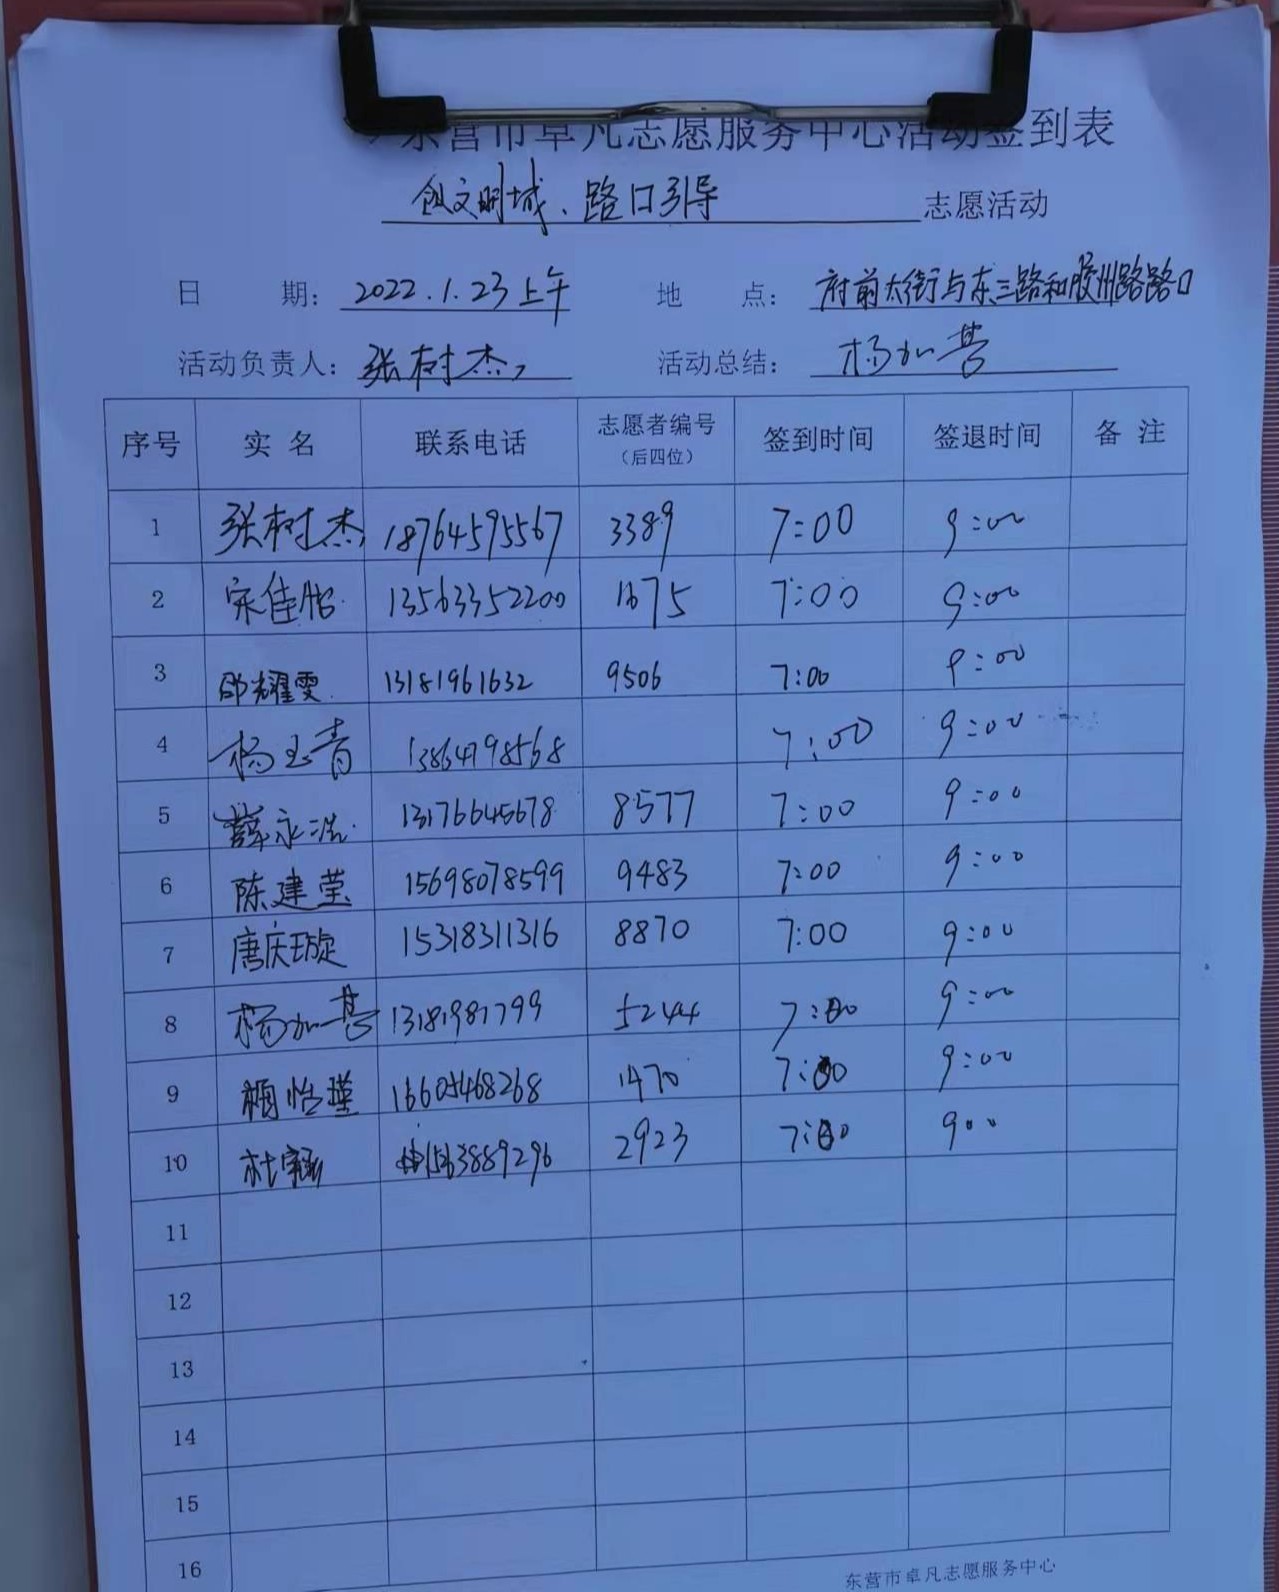 东营市卓凡志愿服务中心活动签到表
创文明城、路口引导 志愿活动
日 期: 2022.1.23上午 地 点: 府前大街与东三路和胶州路路口
活动负责人: 张树杰 活动总结: 杨加营
序号 实 名 联系电话 志愿者编号(后四位) 签到时间 签退时间 备 注
1 张树杰 18764595567 3389 7:00 9:00
2 宋佳 13563352200 1675 7:00 9:00
3 邵耀雯 13181961632 9506 7:00 9:00
4 杨玉青 13864798568 7:00 9:00
5 薛永浩 13176645678 8577 7:00 9:00
6 陈建莹 15698078599 9483 7:00 9:00
7 唐庆璇 15318311316 8870 7:00 9:00
8 杨加 13181981799 5244 7:00 9:00
9 怡瑾 16605468268 1470 7:00 9:00
10 杜涵 1563889296 2923 7:00 900
11
12
13
14
15
16
东营市卓凡志愿服务中心